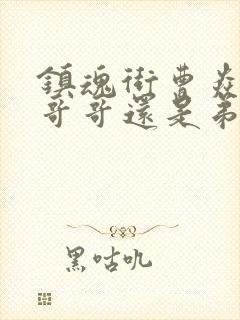 鎮魂街曹焱
哥哥還是弟
黑咕叽